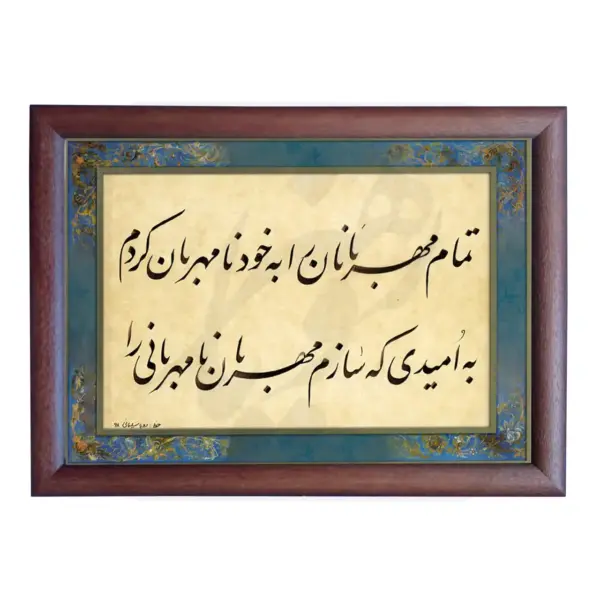 تمام مهربانان را به خود نامهربان کردم
به اُمیدی که سازم مهربان نامهربانی را